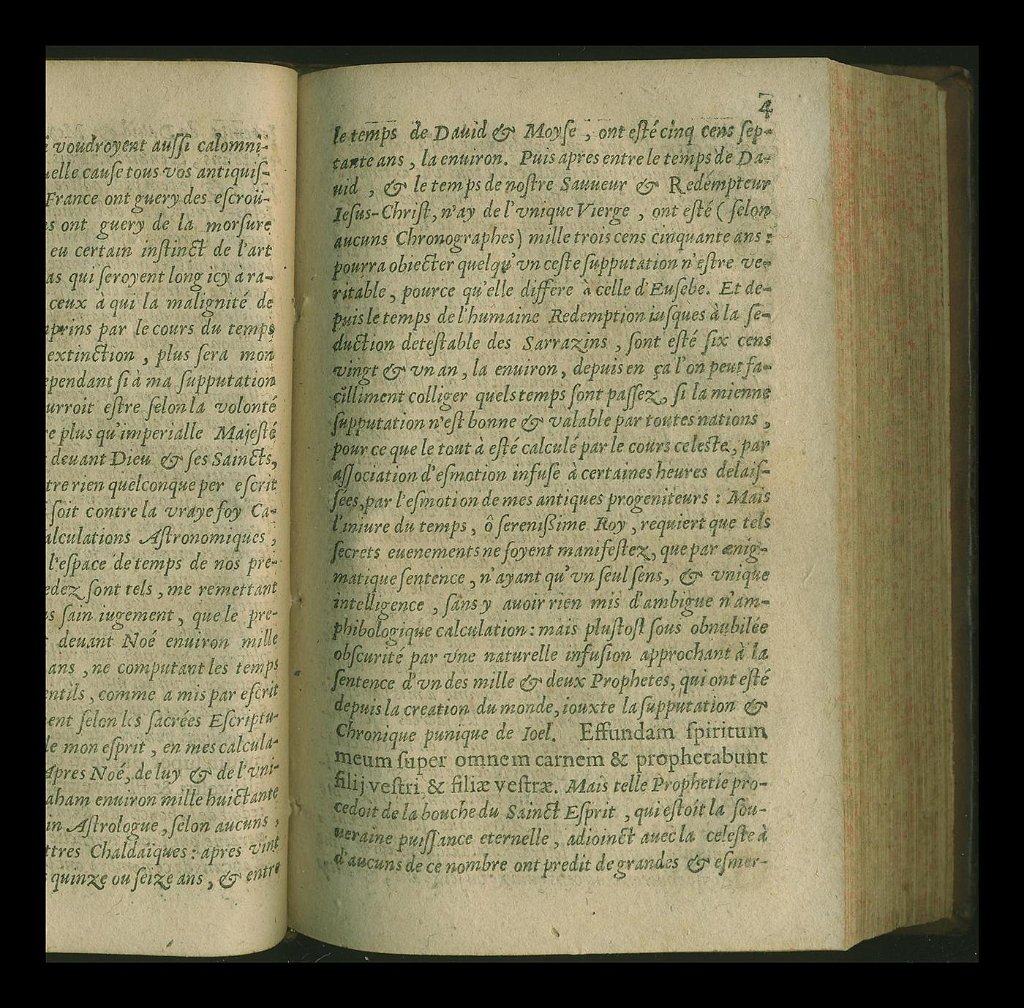 voudroyent aussi calomni-
elle cause tous vos antiquis-
France ont guery des escroü-
ont guery de la morsure
eu certain instinct de l'art
as qui seroyent long icy à ra-
ceux à qui la malignité de
prins par le cours du temps
extinction , plus sera mon
ependant si à ma supputation
urroit estre selon la volonté
e plus qu'imperialle Majesté
devant Dieu & ses Saincts,
tre rien quelconque per escrit
soit contre la vraye foy Ca-
alculations Astronomiques ,
l'espace de temps de nos pre-
edez sont tels , me remettant
s sain iugement , que le pre-
devant Noé enuiron mille
ans , ne computant les temps
entils , comme a mis par escrit
ent selon les sacrées Escriptu-
le mon esprit , en mes calcula-
Apres Noé, de luy & de l'vni-
aham enuiron mille huictante
in Astrologue , selon aucuns ,
ttres Chaldaïques : apres vint
quinze ou seize ans , & entre
4
le temps de Dauid & Moyse , ont esté cinq cens sep-
tante ans , la enuiron. Puis apres entre le temps de Da-
uid , & le temps de nostre Sauueur & Redempteur
Iesus-Christ, n'ay de l'vnique Vierge , ont esté ( selon
aucuns Chronographes) mille trois cens cinquante ans :
pourra obiecter quelqu'vn ceste supputation n'estre ve-
ritable , pource qu'elle differe à celle d'Eusebe. Et de-
puis le temps de l'humaine Redemption iusques à la se-
duction detestable des Sarrazins , sont esté six cens
vingt & vn an , la enuiron , depuis en ça l'on peut fa-
cilliment colliger quels temps sont passez , si la mienne
supputation n'est bonne & valable par toutes nations ,
pour ce que le tout à esté calculé par le cours celeste , par
association d'esmotion infuse à certaines heures delais-
sées, par l'esmotion de mes antiques progeniteurs : Mais
l'iniure du temps , ô serenissime Roy , requiert que tels
secrets euenements ne soyent manifestez , que par ænig-
matique sentence , n'ayant qu'vn seul sens , & vnique
intelligence , sans y auoir rien mis d'ambigue n'am-
phibologique calculation : mais plustost sous obnubilée
obscurité par vne naturelle infusion approchant à la
sentence d'vn des mille & deux Prophetes, qui ont esté
depuis la creation du monde, iouxte la supputation &
Chronique punique de Ioel. Effundam spiritum
meum super omnem carnem & prophetabunt
filij vestri & filiæ vestræ. Mais telle Prophetie pro-
cedoit de la bouche du Sainct Esprit , qui estoit la sou-
ueraine puissance eternelle , adioinct auec la celeste à
d'aucuns de ce nombre ont predit de grandes & esmer-